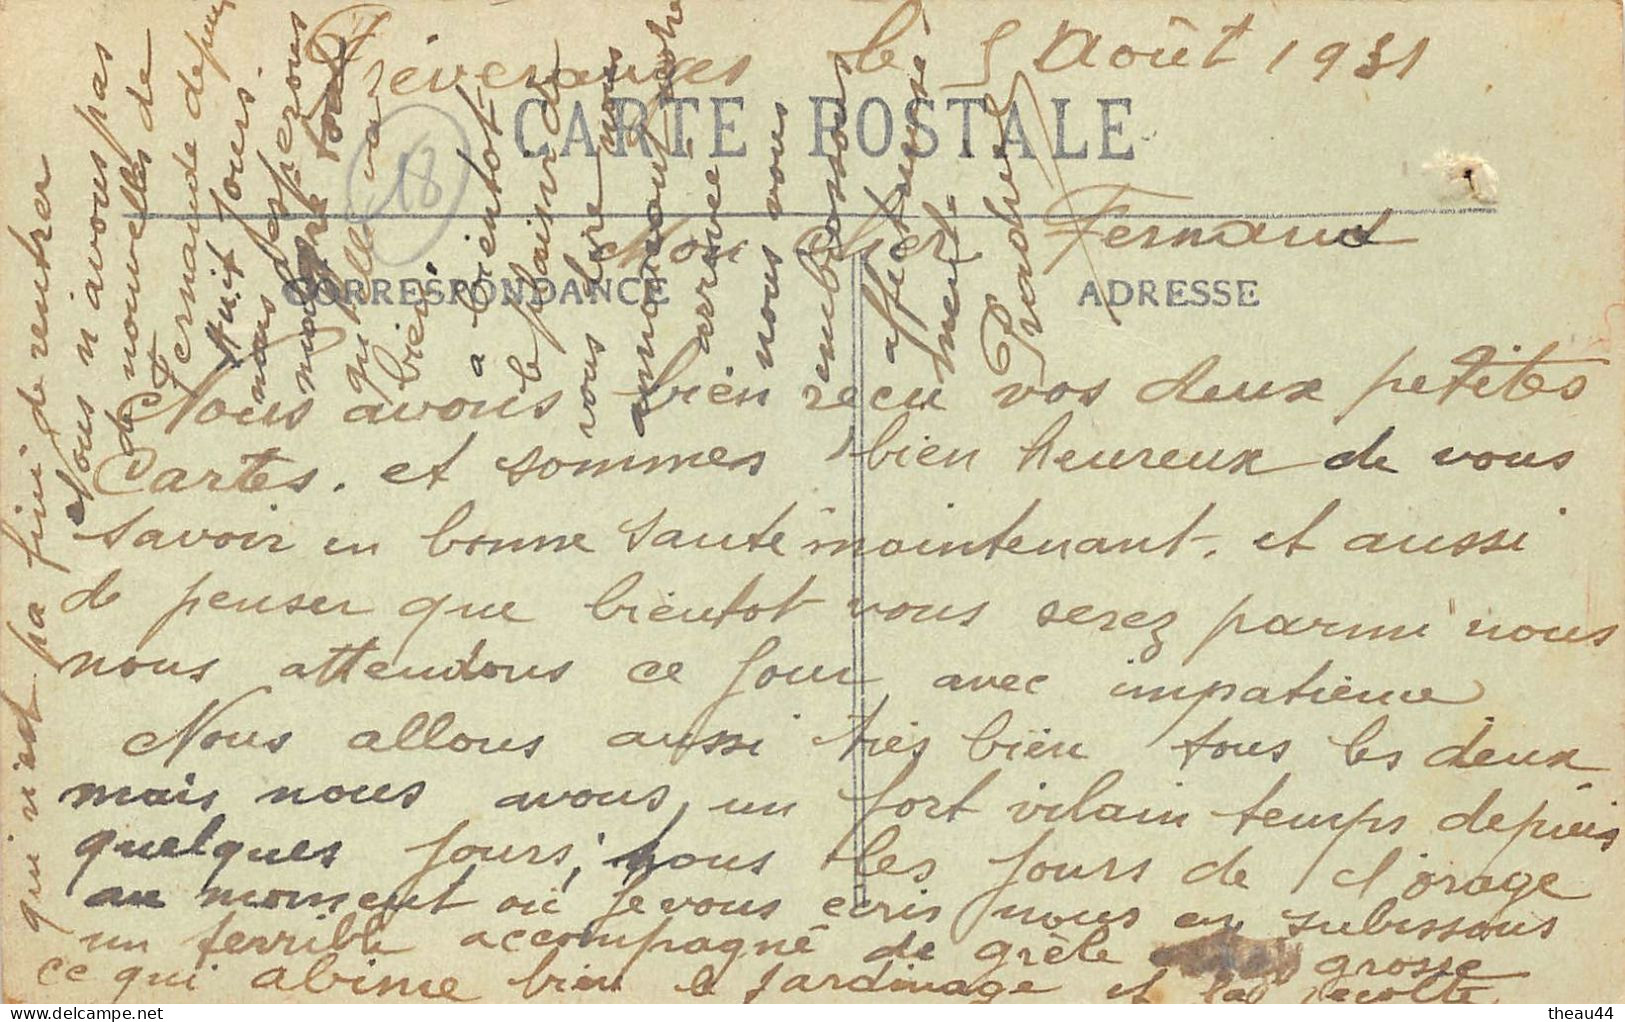 Préveranges le 5 Août 1931
CARTE POSTALE
18
Mon cher Fernand
CORRESPONDANCE
ADRESSE
Nous avons bien reçu vos deux petites
Cartes. et sommes bien heureux de vous
savoir en bonne santé maintenant. et aussi
de penser que bientot vous serez parmi nous
nous attendons ce jour avec impatience
Nous allons aussi très bien tous les deux
mais nous avons, un fort vilain temps depuis
quelques jours, tous les jours de l'orage
au moment où je vous écris nous en subissons
un terrible accompagné de grêle grosse
ce qui abime bien le jardinage et la récolte
qui n'est pa fini de rentrer
Nous n'avons pas
de nouvelles de
Fernande depuis
huit jours.
nous esperons
tout
qu'elle va
bien
a bientot
le plaisir de
vous lire nous
annonçant votre
arrivé
nous vous
embrassons
affectueuse
ment.
theau44